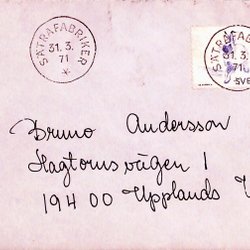 SÄTRAFABRIKER
31.3.
71
SÄTRAFAB
31.3.
71
SVE
Bruno Andersson
Hagtornsvägen 1
194 00 Upplands V